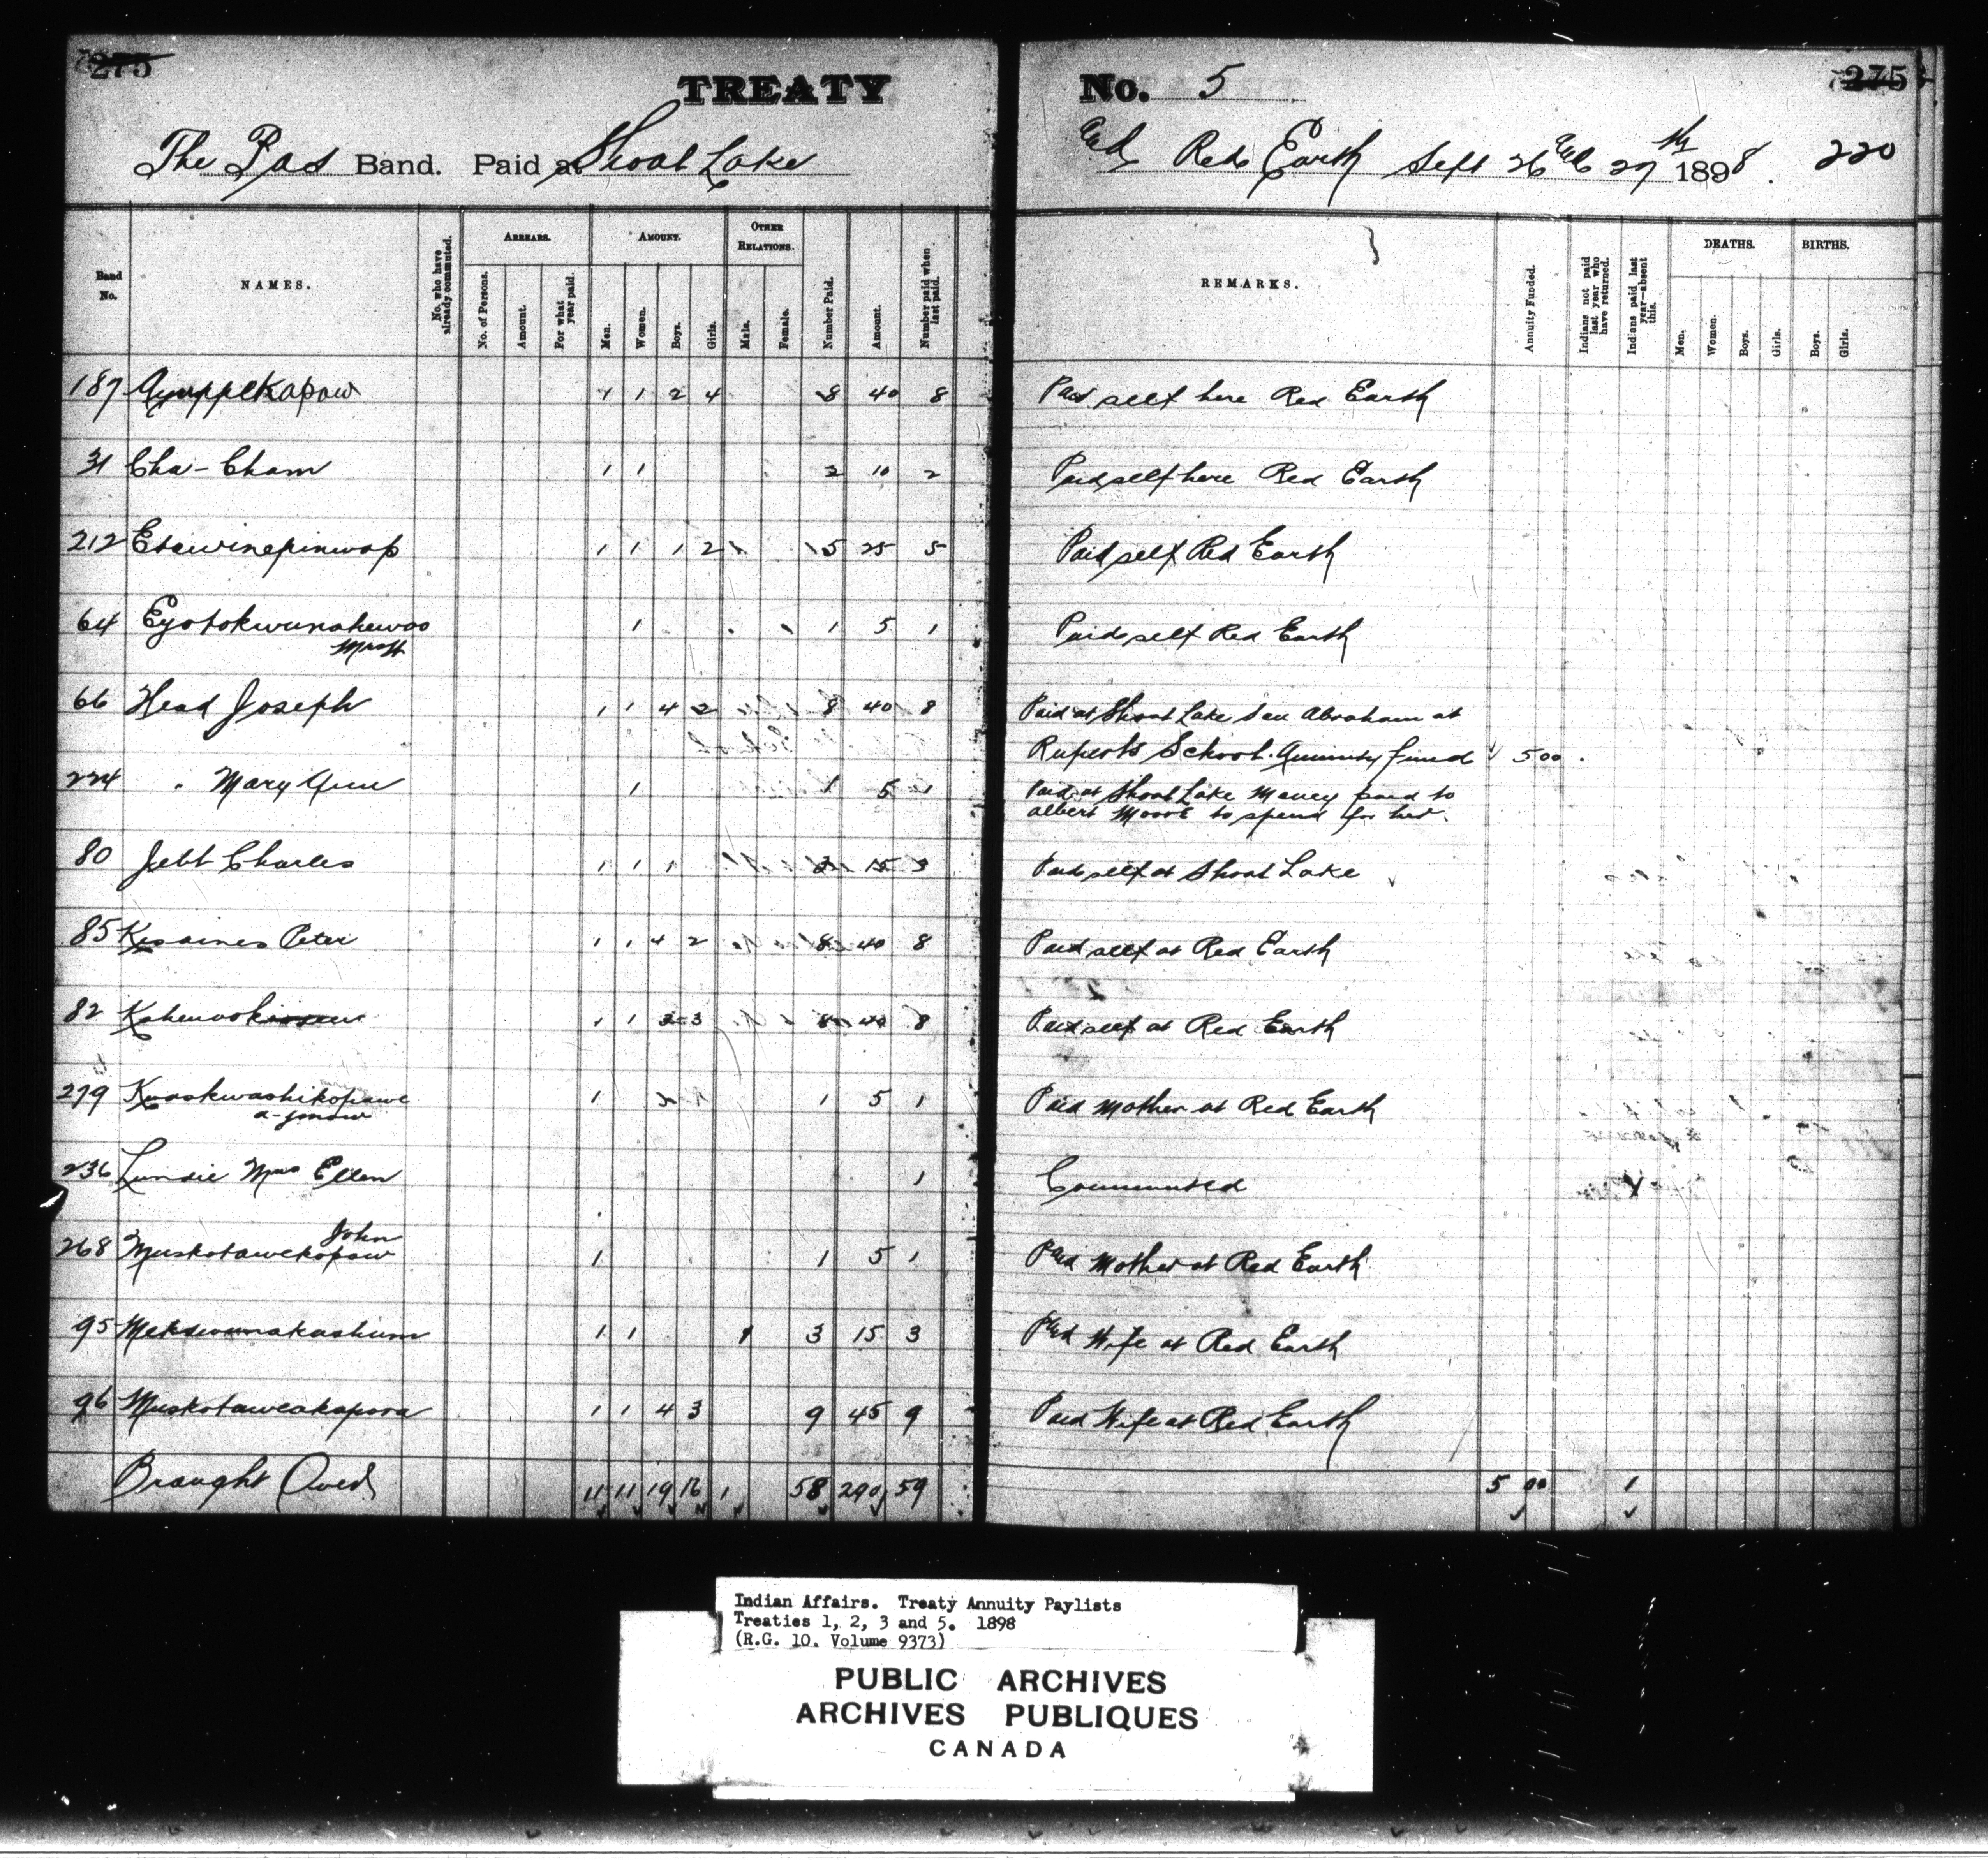 275
TREATY No. 5
275
The Pas Band. Paid at Shoal Lake and Red Earth Sept 26 & 27th 1898. 220
Band No.
NAMES.
No. who have already commuted.
ARREARS.
No. of Persons.
Amount.
For what year paid.
AMOUNT.
Men.
Women.
Boys.
Girls.
OTHER RELATIONS.
Male.
Female.
Number Paid.
Amount.
Number paid when last paid.
REMARKS.
Annuity Funded.
Indians not paid last year who have returned.
Indians paid last year—absent this.
DEATHS.
Men.
Women.
Boys.
Girls.
BIRTHS.
Boys.
Girls.
187 1 1 2 4 8 40 8 Paid self here Red Earth
31 Cha-Cham 1 1 2 10 2 Paid self here Red Earth
212 Esawinepinwap 1 1 1 2 5 25 5 Paid self Red Earth
64 1 1 5 1 Paid self Red Earth
66 Head Joseph 1 1 4 2 8 40 8 Paid at Shoal Lake Abraham at
Ruperts School. Annuity fund 5 00
224 " Mary Ann 1 1 5 1 Paid at Shoal Lake Money paid to
albert Moore to spend for her.
80 Jebb Charles 1 1 1 3 15 3 Paid self at Shoal Lake
85 Peter 1 1 4 2 8 40 8 Paid self at Red Earth
82 1 1 3 3 8 40 8 Paid self at Red Earth
279 Kwaskwashikopawe 1 1 5 1 Paid Mother at Red Earth
236 Lundie Mrs Ellen 1 Commuted
John
268 Muskotawekopaw 1 1 5 1 Paid Mother at Red Earth
95 1 1 1 3 15 3 Paid Wife at Red Earth
96 1 1 4 3 9 45 9 Paid Wife at Red Earth
Braught Over 11 11 19 16 1 58 290 59 5 00 1
Indian Affairs. Treaty Annuity Paylists
Treaties 1, 2, 3 and 5. 1898
(R.G. 10. Volume 9373)
PUBLIC ARCHIVES
ARCHIVES PUBLIQUES
CANADA